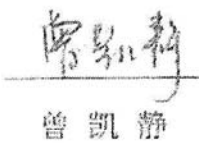 曾凯静
曾凯静